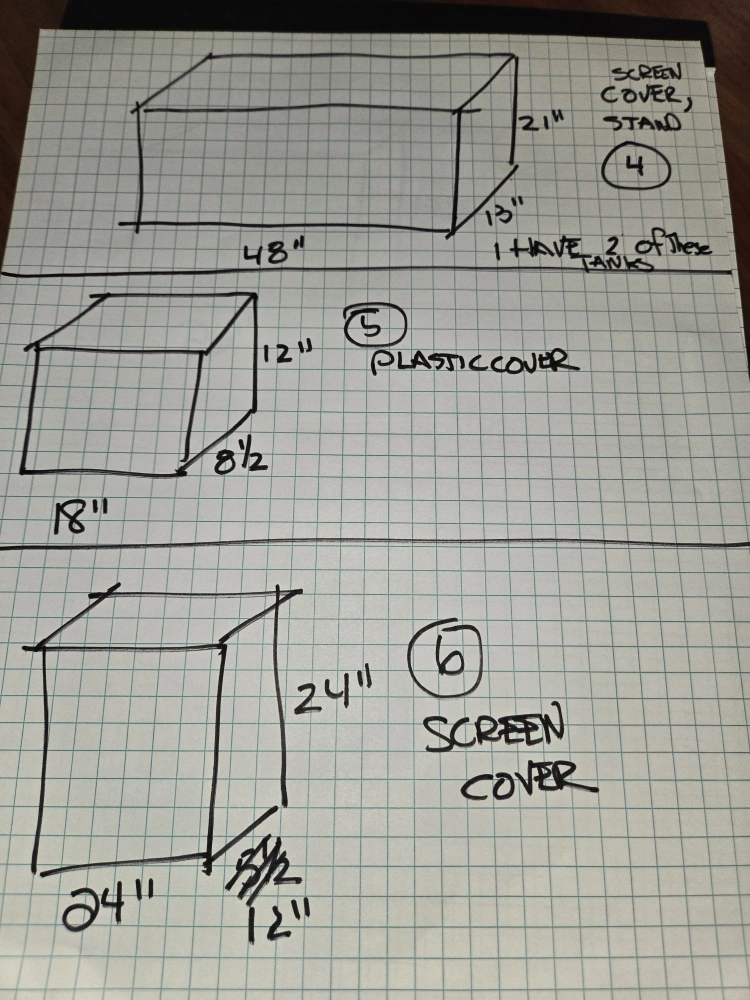 SCREEN
COVER,
STAND
4
21"
13"
48"
I HAVE 2 of These
TANKS
5
PLASTIC COVER
12"
8 1/2
18"
6
SCREEN
COVER
24"
24"
12"